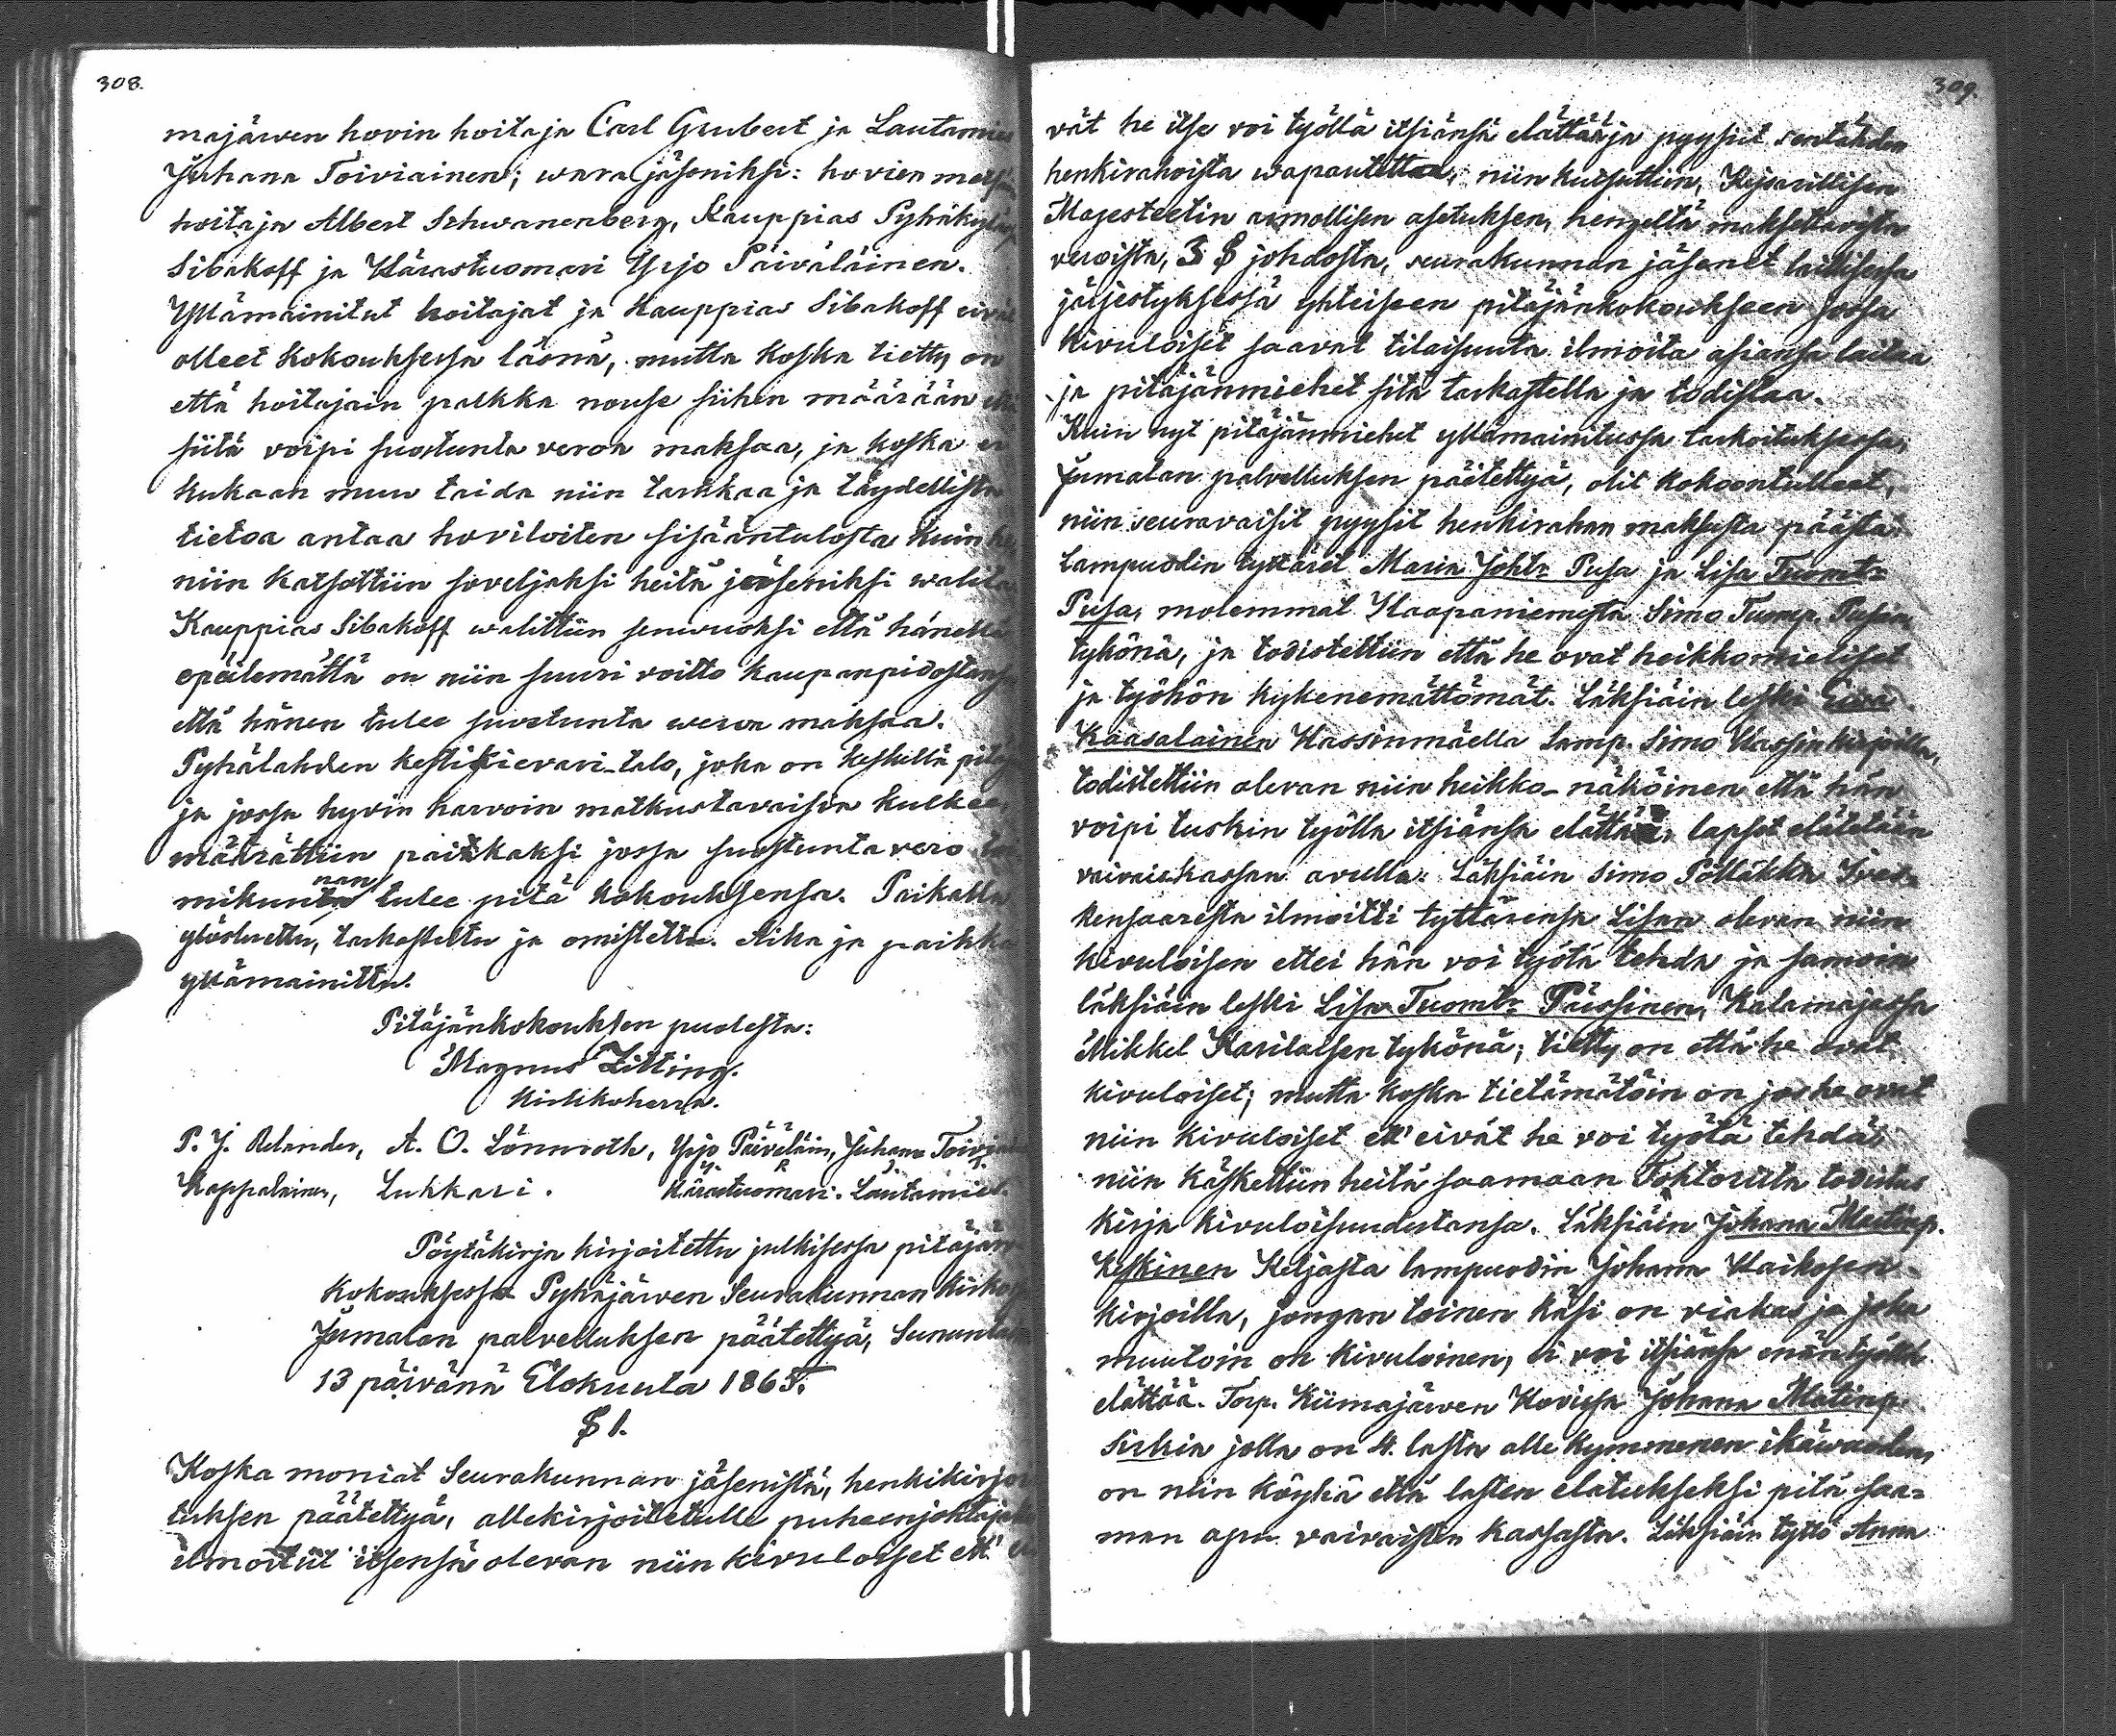 308.
majärwen hovin hoitaja Carl Grubert ja Lautamies
Juhana Toiviainen; wara jäseniksi: hovien metsän
hoitaja Albert Schwanenberg, Kauppias Pyhäkylä
Sibakoff ja Härastuomari Yrjo Päiväläinen.
Yllämainitut hoitajat ja Kauppias Sibakoff eivät
olleet Kokouksessa läsnä, mutta koska tietty on
että hoitajain palkka nouse siihen määrään että
siitä voipi suostunta veroa maksaa, ja koska ei
kukaan muu taida niin tarkkaa ja täydellistä
tietoa antaa hoviloiten sisääntulosta kuin he,
niin katsottiin soveljaksi heitä jäseniksi walita
Kauppias Sibakoff walittiin senwuoksi että hänellä
epäilemättä on niin suuri voitto kaupanpidostansa
että hänen tulee suostunta weroa maksaa.
Pyhälahden kestikievari-talo, joka on keskellä pitäjä
ja jossa hyvin harvoin matkustavaisia kulkee,
määrättiin paikkaksi jossa suostuntavero toi
mikunnan tulee pitä kokouksensa. Paikalla
ylösluettu, tarkastettu ja omistettu. Aika ja paikka
yllämainittu.
Pitäjänkokouksen puolesta:
Magnus Zitting.
Kirkkoherra.
P. J. Relander, A. O. Lönnroth, Yrjo Päiveläin, Juhana Toiviain
Kappalainen, Lukkari. Härastuomari. Lautamies.
Pöytäkirja kirjoitettu julkisessa pitäjän
Kokouksessa Pyhäjärwen Seurakunnan Kirkos
Jumalan palvelluksen päätettyä, Sununtain
13 päivänä Elokuuta 1865.
§ 1.
Koska moniat Seurakunnan jäsenistä, henkikirjoi
tuksen päätettyä, allekirjoitetulle puheenjohtajalle
ilmoitiit itsensä olevan niin kivuloiset ett' ei
309.
vät he itse voi työllä itsiänsä elättää ja pyysiit sentähden
henkirahoista wapautettaa, niin kutsuttiin, Keisarillisen
Majesteetin armollisen asetuksen, hengeltä maksettavista
veroista, 3 § johdosta, seurakunnan jäsenet laillisessa
järjestyksessä yhteiseen pitäjänkokoukseen jossa
kivuloiset saavat tilaisuuta ilmoita asiansa laitaa
ja pitäjänmiehet sitä tarkastella ja todistaa.
Kuin nyt pitäjänmiehet yllämainitussa tarkoituksessa,
Jumalan palvelluksen päätettyä, olit kokoontulleet,
niin seuravaisit pyysit henkirahan maksusta päästä:
Lampuodin tyttäret Maria Johtr Pusa ja Lisa Tuomtr
Pusa, molemmat Haapaniemestä Simo Tuomp. Pusan
tykönä, ja todistettiin että he ovat heikkomieliset
ja työhön kykenemättömät. Läksiäin leski Eeva
Kaasalainen Hassinmäellä Lamp. Simo Hassin kirjoilla,
todistettiin olevan niin heikko-näköinen että hän
voipi tuskin työllä itsiänsä elättää, lapset elätetään
vaivaiskassan avulla. Läksiäin Simo Pölläkkä Ives-
kensaaresta ilmoitti tyttärensä Lisan olevan niin
kivuloisen ettei hän voi työtä tehdä ja samoin
läksiäin leski Lisa Tuomtr Päissinen, Kalamajassa
Mikkel Karilaisen tykönä; tietty on että he ovat
kivuloiset; mutta koska tietämätöin on jos he ovat
niin kivuloiset ett' eivät he voi työtä tehdä,
niin käskettiin heitä saamaan Tohtorilta todistus
kirja kivuloisuudestansa. Läksiäin Johana Matinp.
Keskinen Keljasta lampuodin Johana Haikosen
kirjoilla, jongan toinen käsi on viakas ja joka
muutoin on kivuloinen, ei voi itsiänsä enän työllä
elättää. Torp. Kiimajärwen Hovissa Johana Matinp.
Sirkia jolla on 4. lasta alle kymmenen ikäwuoden,
on niin köyhä että lasten elatukseksi pitä saa-
man apu vaivaisten kassasta. Läksiäin tyttö Anna